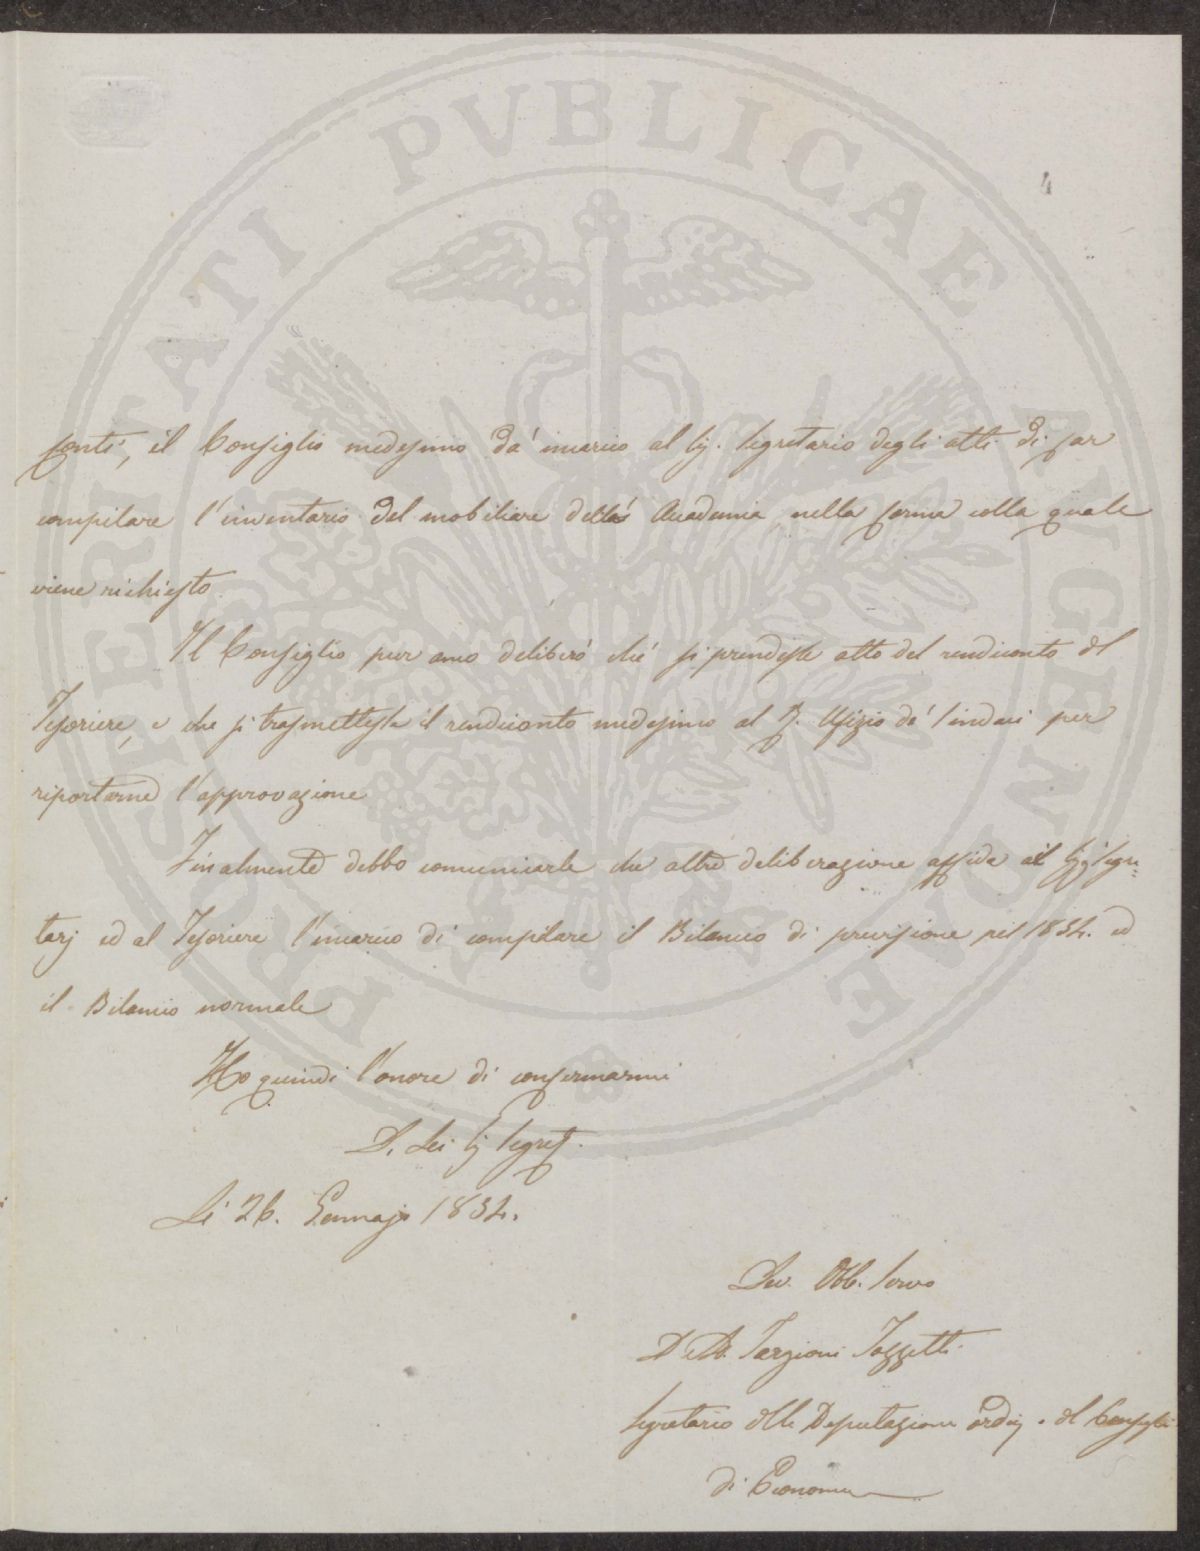 4
conti, il Consiglio medesimo dà incarico al Sig. Segretario degli atti di far
compilare l'inventario del mobiliare della Accademia nella forma colla quale
viene richiesto.
Il Consiglio pur anco deliberò che si prendesse atto del rendiconto del
Tesoriere, e che si trasmettesse il rendiconto medesimo al Ufizio de' Sindaci per
riportarne l'approvazione
Finalmente debbo comunicarle che altre deliberazione affida ai Sigg.i Segre=
tarj ed al Tesoriere l'incarico di compilare il Bilancio di previsione pel 1854. ed
il Bilancio normale
Ho quindi l'onore di confermarmi
D. Lei Sig Segret.
Lì 26. Gennajo 1854.
Dev. Obb. Servo
Targioni Tozzetti
Segretario della Deputazione ordin. e del Consiglio
di Economia
POSTERITATI PVBLICAE AVGENDAE